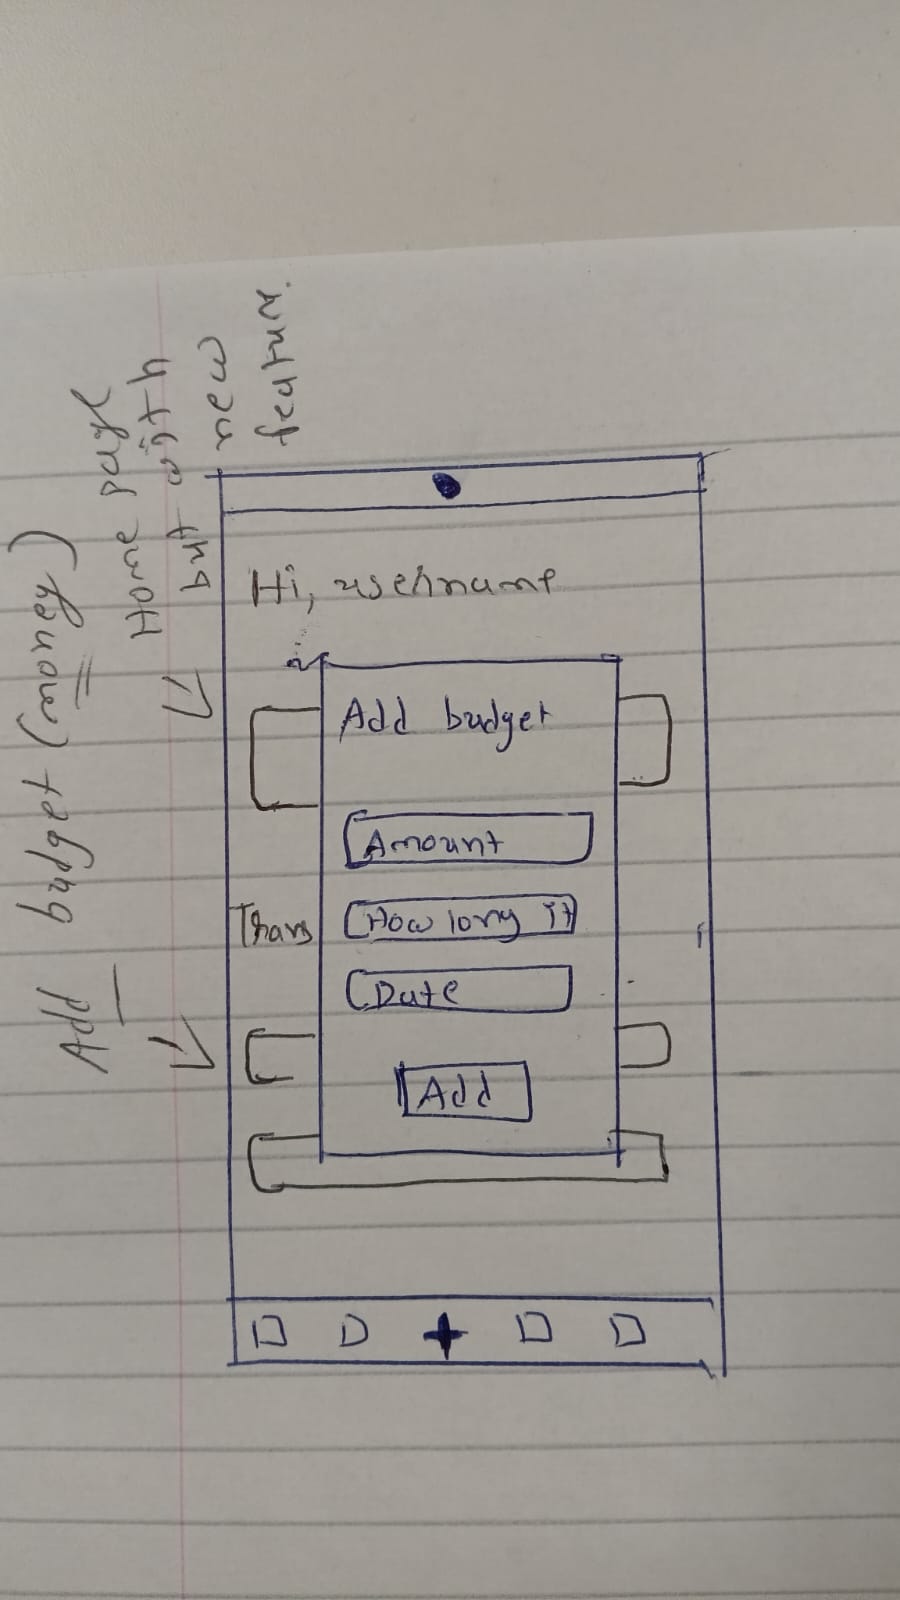 Add budget (money)
Home page
but with
new
feature.
Hi, username
Add budget
Amount
Trans
How long it
Date
Add